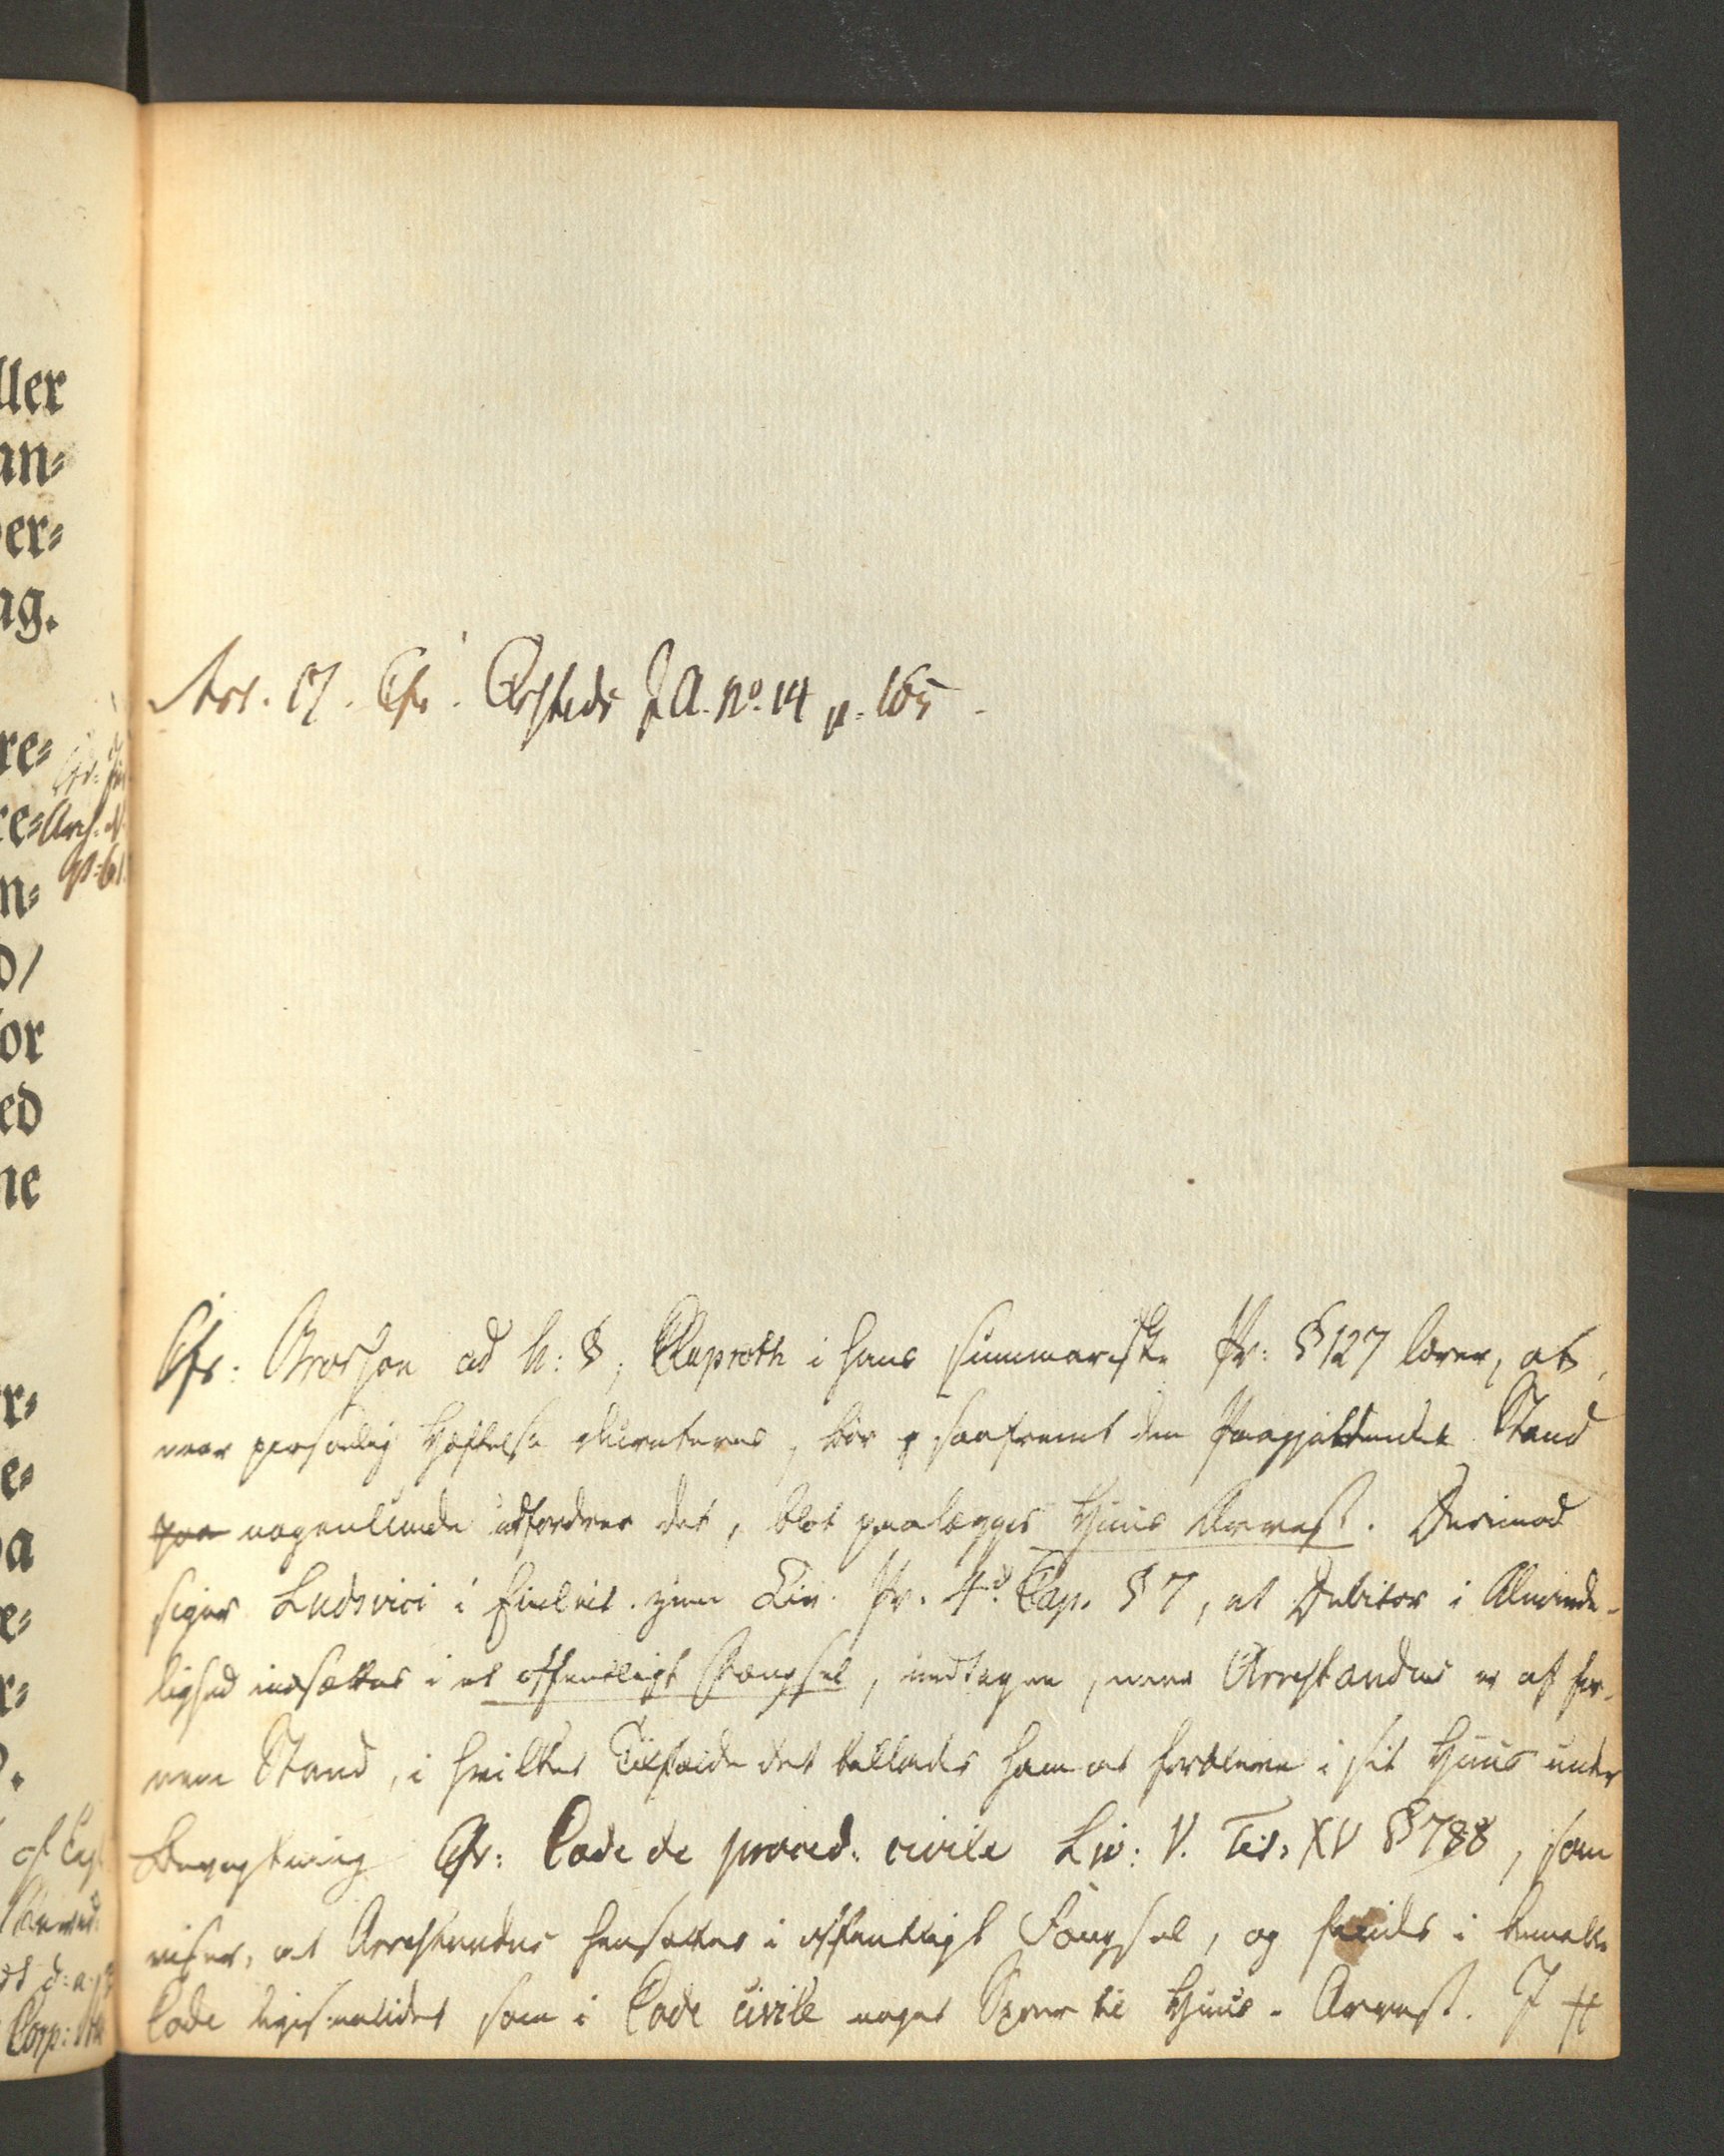 ller
an⸗
er⸗
ag.
re⸗
re⸗
n⸗
d/
for
ed
ne
r⸗
e⸗
a
e⸗
r⸗
Art. 17. Cfr. Ørsteds J A. No. 14 p. 165
Cfr. Brorson ad h: §; Claproth i hans summariske Pr: § 127 lærer, at,
naar personlig Hæftelse decreteres, bør saafremt den Paagjældendes Stand
paa nogenlunde udfordrer det, blot paalægges Huus Arrest. Derimod
siger Ludovici i Einleit. zum Civ. Pr. 4d Cap. § 7, at Debitor i Alminde-
lighed indsættes i et offentligt Fængsel, undtagen, naar Arrestandus er af for-
nem Stand, i hvilket Tilfælde det tillades ham at forblive i sit Huus under
Bevogtning Cfr: Code de proced. civile Liv: V. Tit: XV § 788, som
viser, at Arrestandus hensættes i offentligt Fængsel, og findes i bemeldte
Code ligesaalidet som i Code civile noget Spor til Huus-Arrest. I